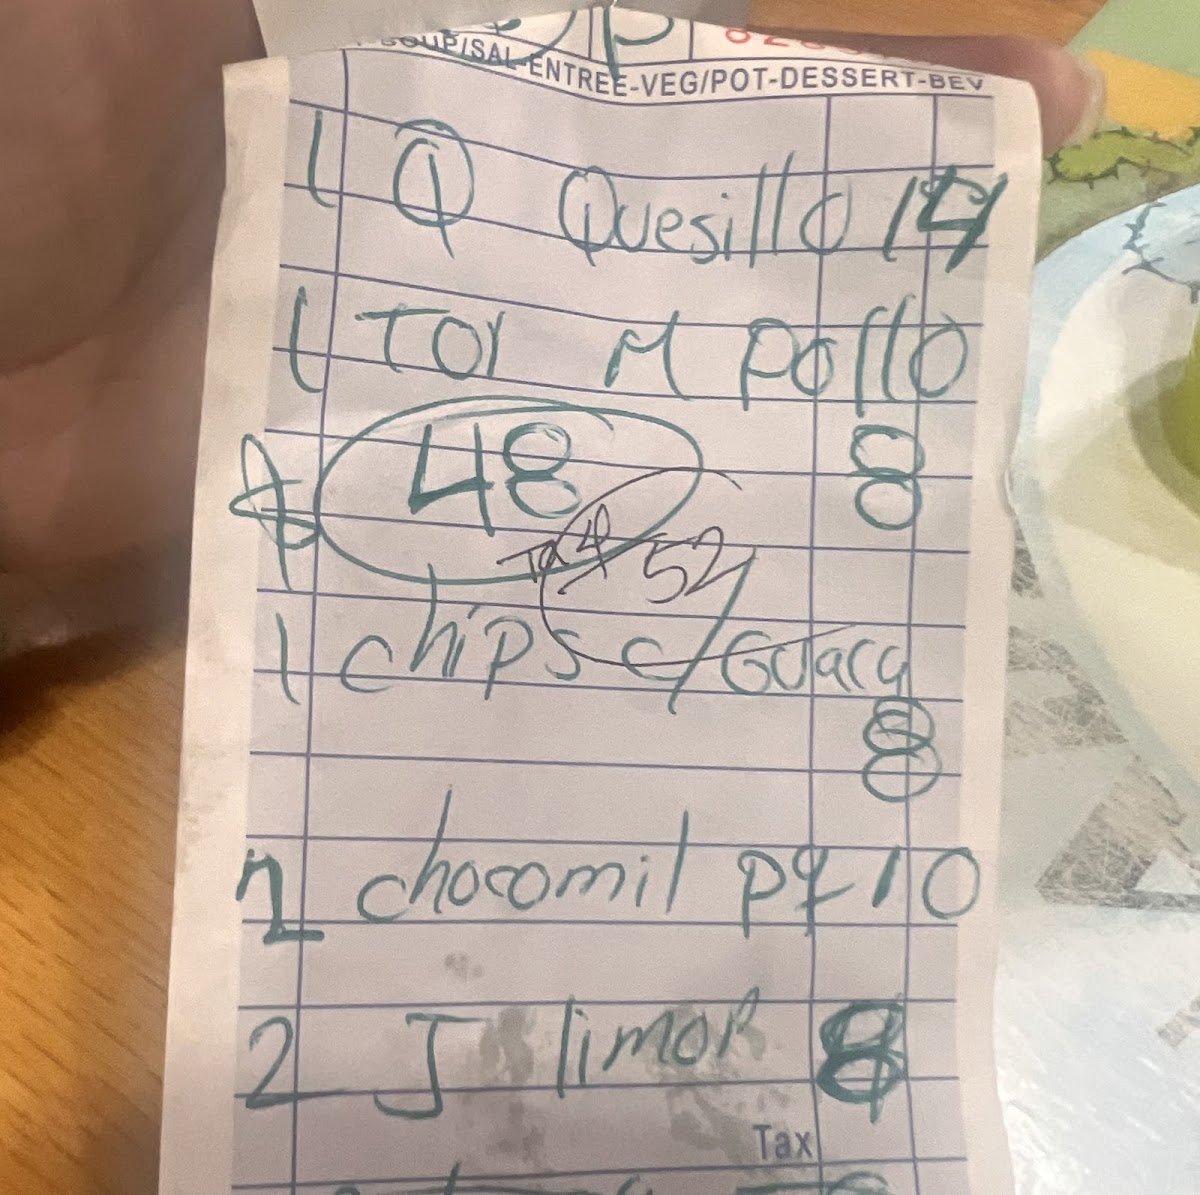 SOUP/SAL-ENTREE-VEG/POT-DESSERT-BEV
1 Q Quesillo 14
1 Tor M Pollo
8
$ 48
Ta 4 52
1 chips c/Guaca
8
2 chocomil pq 10
2 J limon 8
Tax